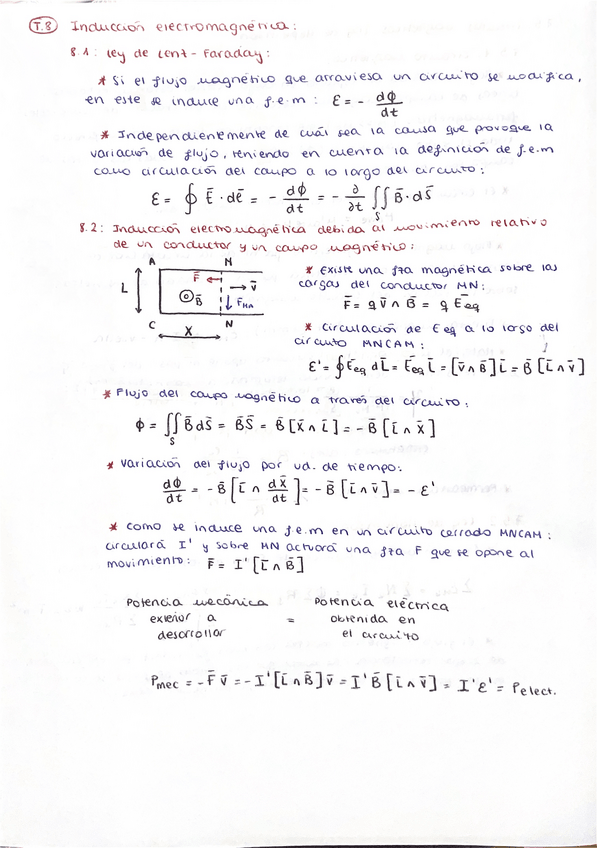 T.8 Inducción electromagnética:
8.1: Ley de Lent - Faraday:
* Si el flujo magnético que atraviesa un circuito se modifica,
en este se induce una f.e.m : ε = - dϕ/dt
* Independientemente de cuál sea la causa que provoque la
variación de flujo, teniendo en cuenta la definición de f.e.m
como circulación del campo a lo largo del circuito:
ε = ∮ Ē · dē = - dϕ/dt = - ∂/∂t ∬_S B̄ · dS̄
8.2: Inducción electromagnética debida al movimiento relativo
de un conductor y un campo magnético:
A N
F̄ v̄
L B̄ F_HA
C N
X
* Existe una fza magnética sobre las
cargas del conductor MN:
F̄ = q v̄ ∧ B̄ = q Ē_eq
* Circulación de E_eq a lo largo del
circuito MNCAM:
ε' = ∮ Ē_eq dL̄ = Ē_eq L̄ = [v̄ ∧ B̄] L̄ = B̄ [L̄ ∧ v̄]
* Flujo del campo magnético a través del circuito:
ϕ = ∬_S B̄ dS̄ = B̄S̄ = B̄ [X̄ ∧ L̄] = - B̄ [L̄ ∧ X̄]
* Variación del flujo por ud. de tiempo:
dϕ/dt = - B̄ [L̄ ∧ dX̄/dt] = - B̄ [L̄ ∧ v̄] = - ε'
* Como se induce una f.e.m en un circuito cerrado MNCAM:
circulará I' y sobre MN actuará una fza F que se opone al
movimiento: F̄ = I' [L̄ ∧ B̄]
Potencia mecánica = Potencia eléctrica
exterior a obtenida en
desarrollar el circuito
P_mec = - F̄ v̄ = - I' [L̄ ∧ B̄] v̄ = I' B̄ [L̄ ∧ v̄] = I' ε' = P_elect.